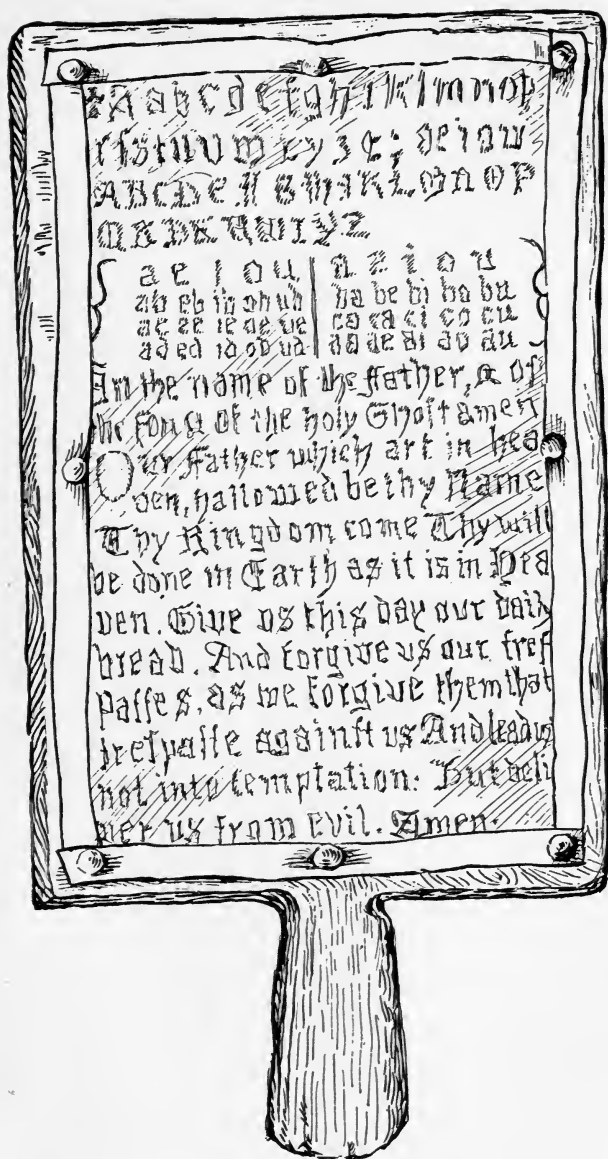 A a b c d e f g h i k l m n o p
r ſ s t u v w x y z &; a e i o u
A B C D E F G H I K L M N O P
Q R S T U W X Y Z
a e i o u | a e i o u
ab eb ib ob ub | ba be bi bo bu
ac ec ic oc uc | ca ca ci co cu
ad ed id od ud | da de di do du
In the name of the Father, & of
the ſon & of the holy Ghoſt amen
Our Father which art in hea
ven, hallowed be thy Name
Thy Kingdom come Thy will
be done in Earth as it is in Hea
ven. Give us this day our daily
bread. And forgive us our treſ
paſſes, as we forgive them that
treſpaſſe againſt us And lead us
not into temptation: But deli
ver us from evil. Amen.